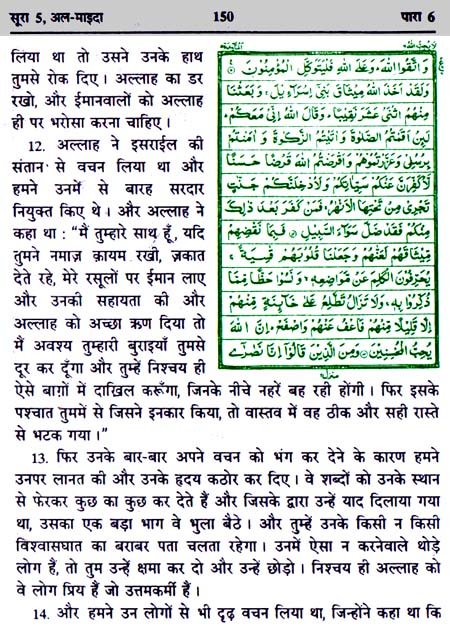 सूरा 5, अल-माइदा 150 पारा 6
लिया था तो उसने उनके हाथ
तुमसे रोक दिए। अल्लाह का डर
रखो, और ईमानवालों को अल्लाह
ही पर भरोसा करना चाहिए।
12. अल्लाह ने इसराईल की
संतान से वचन लिया था और
हमने उनमें से बारह सरदार
नियुक्त किए थे। और अल्लाह ने
कहा था : "मैं तुम्हारे साथ हूँ, यदि
तुमने नमाज़ क़ायम रखी, ज़कात
देते रहे, मेरे रसूलों पर ईमान लाए
और उनकी सहायता की और
अल्लाह को अच्छा ऋण दिया तो
मैं अवश्य तुम्हारी बुराइयाँ तुमसे
दूर कर दूँगा और तुम्हें निश्चय ही
وَاتَّقُوا اللهَ وَعَلَى اللهِ فَلْيَتَوَكَّلِ الْمُؤْمِنُوْنَ
وَلَقَدْ اَخَذَ اللهُ مِيْثَاقَ بَنِيْٓ اِسْرَآءِيْلَ وَبَعَثْنَا
مِنْهُمُ اثْنَيْ عَشَرَ نَقِيْبًا وَقَالَ اللهُ اِنِّيْ مَعَكُمْ
لَئِنْ اَقَمْتُمُ الصَّلٰوةَ وَاٰتَيْتُمُ الزَّكٰوةَ وَاٰمَنْتُمْ
بِرُسُلِيْ وَعَزَّرْتُمُوْهُمْ وَاَقْرَضْتُمُ اللهَ قَرْضًا حَسَنًا
لَّاُكَفِّرَنَّ عَنْكُمْ سَيِّاٰتِكُمْ وَلَاُدْخِلَنَّكُمْ جَنّٰتٍ
تَجْرِيْ مِنْ تَحْتِهَا الْاَنْهٰرُ فَمَنْ كَفَرَ بَعْدَ ذٰلِكَ
مِنْكُمْ فَقَدْ ضَلَّ سَوَآءَ السَّبِيْلِ فَبِمَا نَقْضِهِمْ
مِّيْثَاقَهُمْ لَعَنّٰهُمْ وَجَعَلْنَا قُلُوْبَهُمْ قٰسِيَةً
يُحَرِّفُوْنَ الْكَلِمَ عَنْ مَّوَاضِعِهٖ وَنَسُوْا حَظًّا مِّمَّا
ذُكِّرُوْا بِهٖ وَلَا تَزَالُ تَطَّلِعُ عَلٰى خَآئِنَةٍ مِّنْهُمْ
اِلَّا قَلِيْلًا مِّنْهُمْ فَاعْفُ عَنْهُمْ وَاصْفَحْ اِنَّ اللهَ
يُحِبُّ الْمُحْسِنِيْنَ وَمِنَ الَّذِيْنَ قَالُوْٓا اِنَّا نَصٰرٰٓى
ऐसे बाग़ों में दाख़िल करूँगा, जिनके नीचे नहरें बह रही होंगी। फिर इसके
पश्चात तुममें से जिसने इनकार किया, तो वास्तव में वह ठीक और सही रास्ते
से भटक गया।"
13. फिर उनके बार-बार अपने वचन को भंग कर देने के कारण हमने
उनपर लानत की और उनके हृदय कठोर कर दिए। वे शब्दों को उनके स्थान
से फेरकर कुछ का कुछ कर देते हैं और जिसके द्वारा उन्हें याद दिलाया गया
था, उसका एक बड़ा भाग वे भुला बैठे। और तुम्हें उनके किसी न किसी
विश्वासघात का बराबर पता चलता रहेगा। उनमें ऐसा न करनेवाले थोड़े
लोग हैं, तो तुम उन्हें क्षमा कर दो और उन्हें छोड़ो। निश्चय ही अल्लाह को
वे लोग प्रिय हैं जो उत्तमकर्मी हैं।
14. और हमने उन लोगों से भी दृढ़ वचन लिया था, जिन्होंने कहा था कि